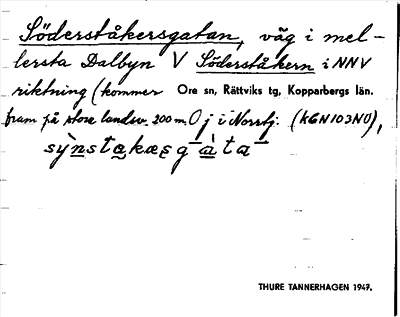 Söderståkersgatan, väg i mel-
lersta Dalbyn V Söderståkern i NNV
riktning (kommer Ore sn, Rättviks tg, Kopparbergs län.
fram på stora landsv. 200 m. O j i Norrtj: (KGN103NO),
sỳnstakæsg-àta-
THURE TANNERHAGEN 1947.